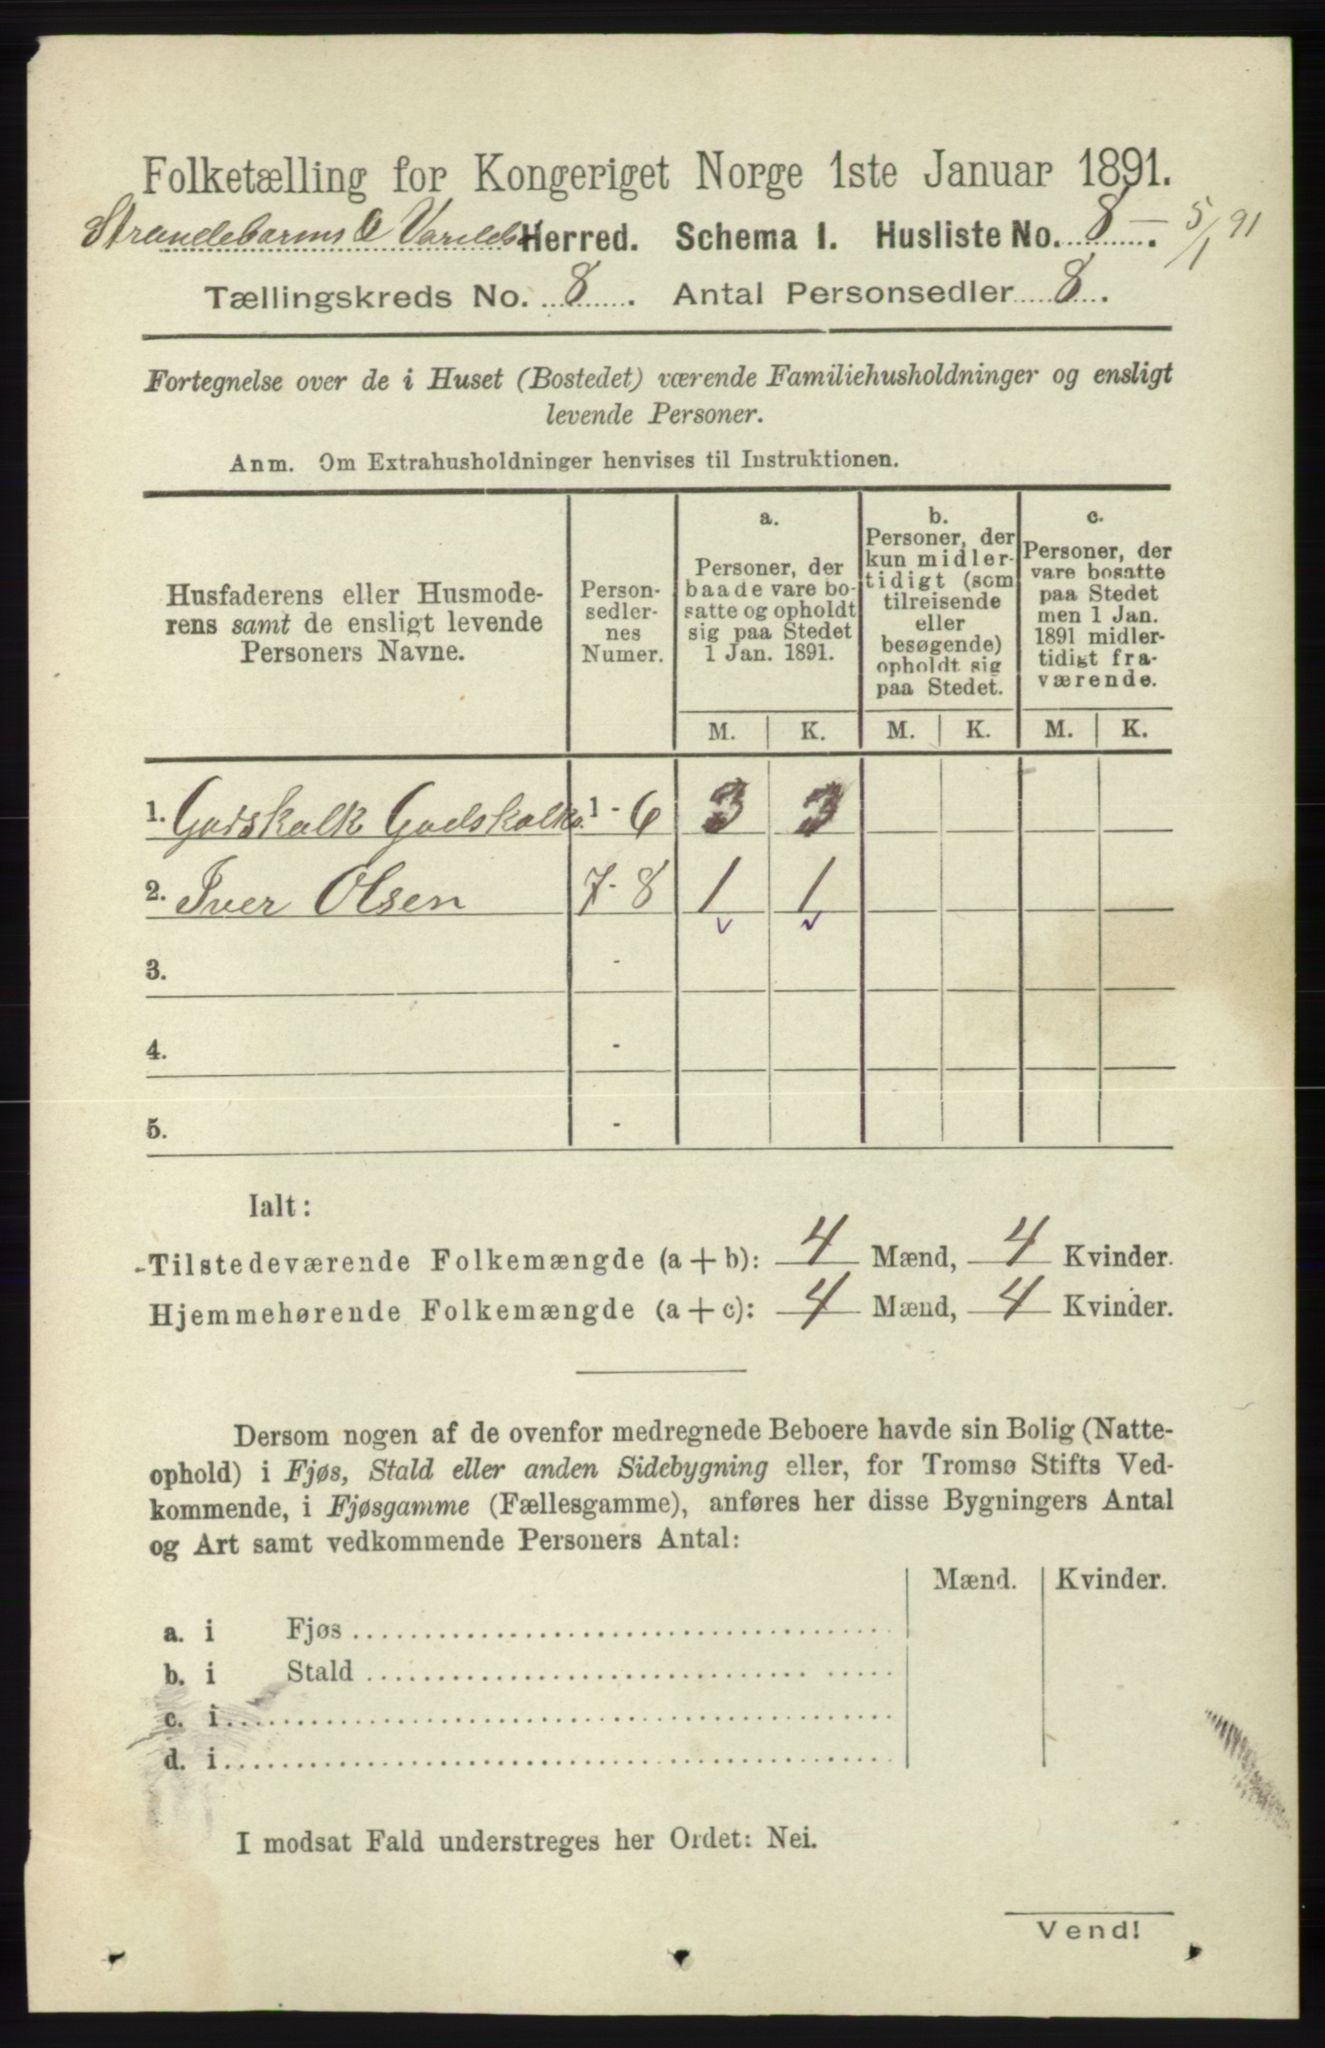 Folketælling for Kongeriget Norge 1ste Januar 1891.
Strandebarms & Varalds Herred. Schema I. Husliste No. 8 - . 5/1 91
Tællingskreds No. 8 . Antal Personsedler 8 .
Fortegnelse over de i Huset (Bostedet) værende Familiehusholdninger og ensligt
levende Personer.
Anm. Om Extrahusholdninger henvises til Instruktionen.
Husfaderens eller Husmode-
rens samt de ensligt levende
Personers Navne.
Person-
sedler-
nes
Numer.
a.
Personer, der
baade vare bo-
satte og opholdt
sig paa Stedet
1 Jan. 1891.
b.
Personer, der
kun midler-
tidigt (som
tilreisende
eller
besøgende)
opholdt sig
paa Stedet.
c.
Personer, der
vare bosatte
paa Stedet
men 1 Jan.
1891 midler-
tidigt fra-
værende.
M. K. M. K. M. K.
1. Godskalk Godskalks. 1 - 6 3 3
2. Iver Olsen 7 - 8 1 1
3. -
4. -
5. -
Ialt:
Tilstedeværende Folkemængde (a + b): 4 Mænd, 4 Kvinder.
Hjemmehørende Folkemængde (a + c): 4 Mænd, 4 Kvinder.
Dersom nogen af de ovenfor medregnede Beboere havde sin Bolig (Natte-
ophold) i Fjøs, Stald eller anden Sidebygning eller, for Tromsø Stifts Ved-
kommende, i Fjøsgamme (Fællesgamme), anføres her disse Bygningers Antal
og Art samt vedkommende Personers Antal:
Mænd. Kvinder.
a. i Fjøs
b. i Stald
c. i
d. i
I modsat Fald understreges her Ordet: Nei.
Vend!